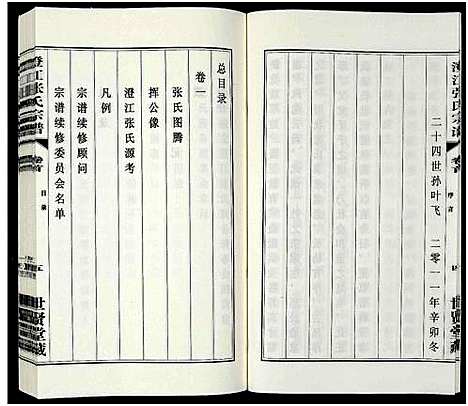 澄江张氏宗谱
卷首
序言
四
世贤堂藏
二十四世孙叶飞 二零一一年辛卯冬
总目录
卷一
张氏图腾
挥公像
澄江张氏源考
凡例
宗谱续修顾问
宗谱续修委员会名单
澄江张氏宗谱
卷首
目录
五
世贤堂藏